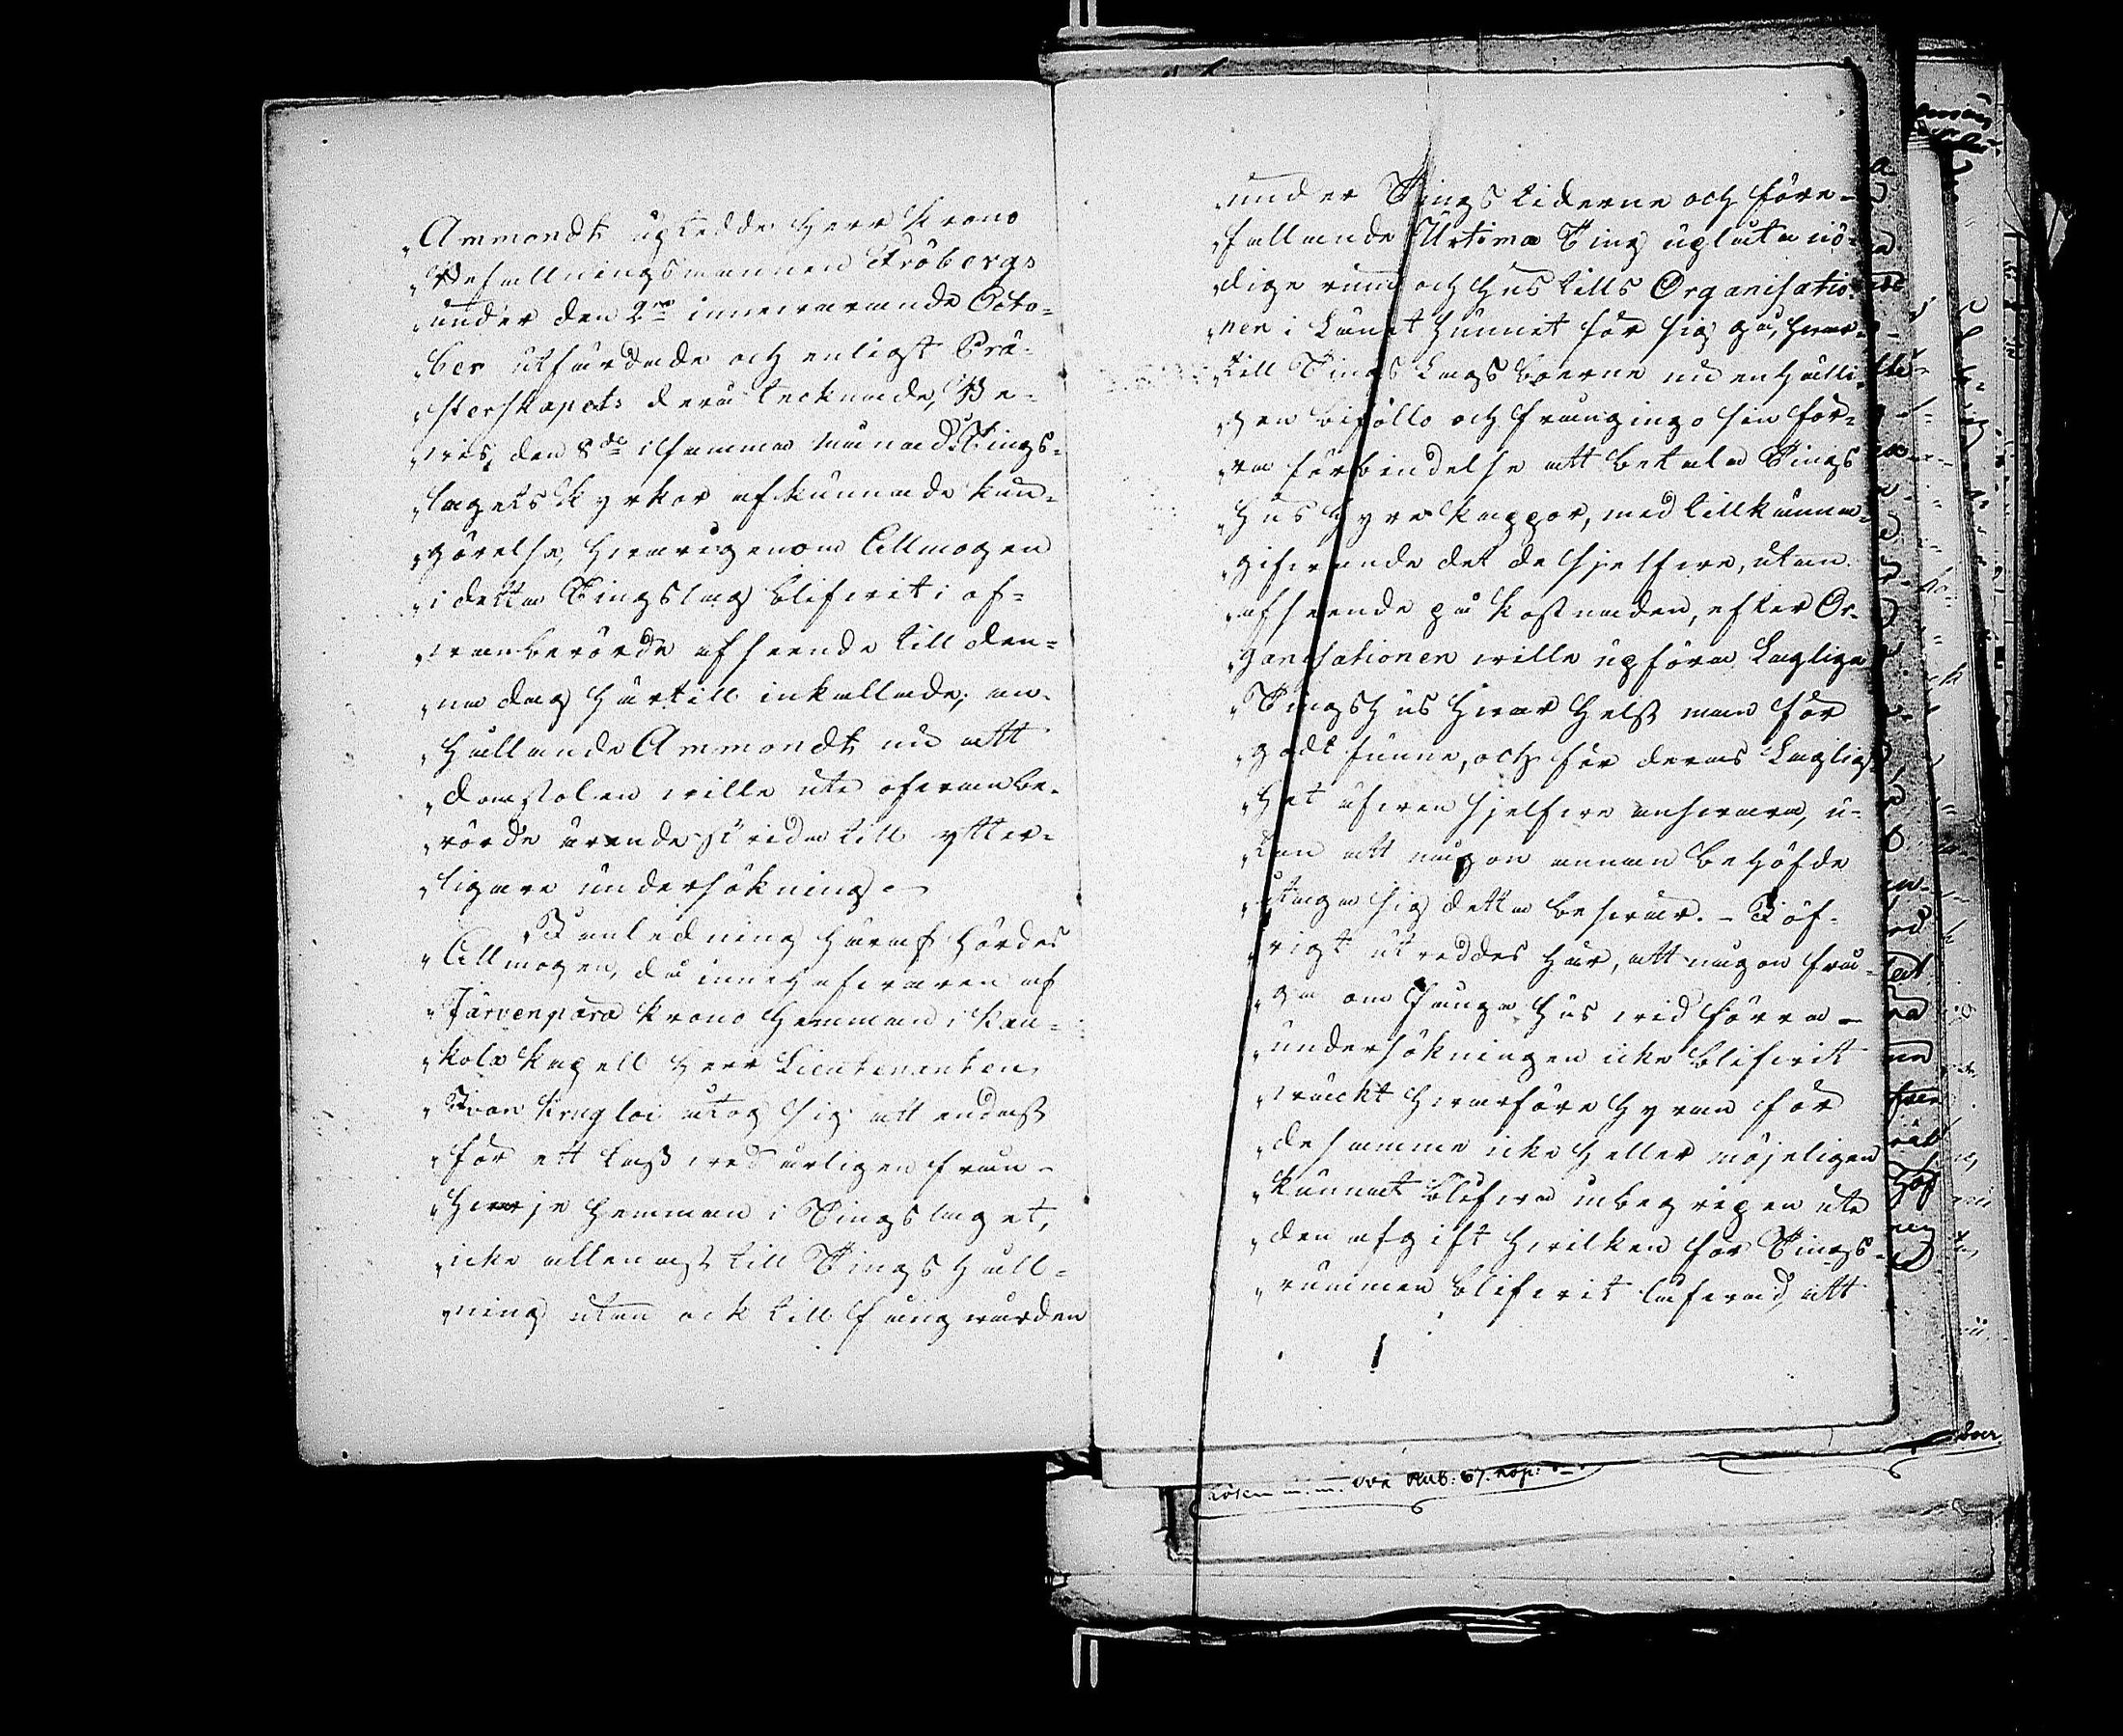 „Ammondt uptedde Herr Krono
„Befallningsmannen Fröbergs
„under den 2dra innewarande Octo=
„ber utfärdade och enligt Prä=
„sterskapets derå tecknade, Be=
„vis, den 8de i samma månad i Tings=
„lagets Kyrkor afkunnade kun=
„görelse, hwarigenom Allmogen
„i detta Tingslag blifwit i of=
„wanberörde afseende till den=
„na dag härtill inkallade; an=
„hållande Ammondt nu att
„domstolen wille uti ofwanbe=
„rörde ärende skrida till ytter=
„ligare undersökning. —
„I anledning häraf hördes
„Allmogen, då innehafwaren af
„Järvenpära Krono Hemman i Kau=
„kola Kapell Herr Lieutenanten
„Iwan Krugloi åtog sig att endast
„för ett lass wed årligen från
„hwarje Hemman i Tingslaget,
„icke allenast till Tings håll=
„ning utan ock till fångwården
„under Tings tiderne och före=
„fallande Urtima Ting uplåta nö=
„dige rum och hus tills Organisatio=
„nen i Länet hunnit för sig gå, hwar=
„till Tings Lags boerne nu enhälli=
„gen biföllo och frångingo sin för=
„ra förbindelse att betala Tings
„hus hyra kappor, med tillkänna=
„gifwande det de sjelfwe, utan
„afseende på kostnaden, efter Or=
„ganisationen wille upföra Laglige
„Tingshus hwar helst man för
„godt funne, och för deras Laglig=
„het äfwen sjelfwe answara, u=
„tan att någon annan behöfde
„åtaga sig detta beswär. – I öf=
„rigt utreddes här, att någon frå=
„ga om Fånge hus wid förra
„undersökningen icke blifwit
„wäckt hwarföre hyran för
„desamme icke heller möjeligen
„kunnat blifwa inbegripen uti
„den afgift hwilken för Tings=
„rummen blifwit lofwad, att
Rub: 67. kop: